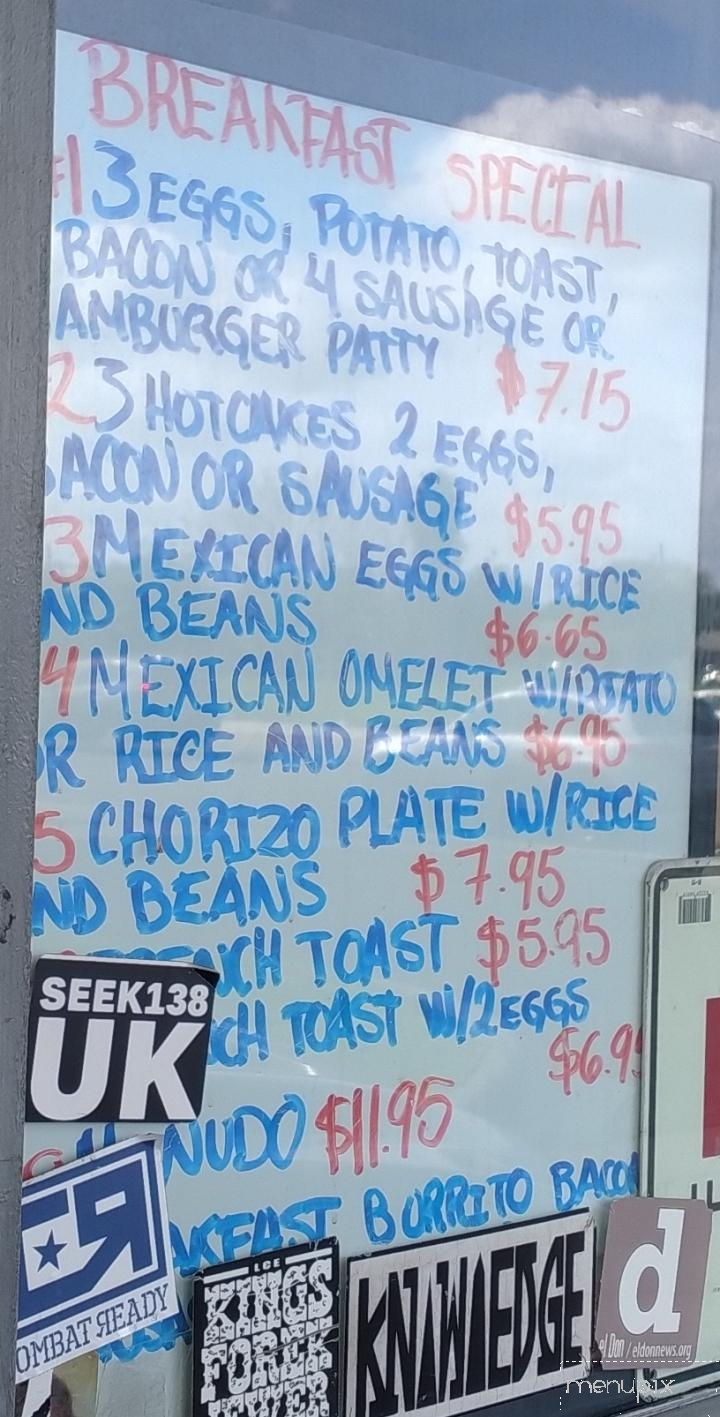 BREAKFAST SPECIAL
#1 3 EGGS, POTATO, TOAST,
BACON OR 4 SAUSAGE OR
AMBURGER PATTY $7.15
2 3 HOTCAKES 2 EGGS,
BACON OR SAUSAGE $5.95
3 MEXICAN EGGS W/RICE
ND BEANS $6.65
4 MEXICAN OMELET W/POTATO
OR RICE AND BEANS $6.95
5 CHORIZO PLATE W/RICE
ND BEANS $7.95
FRENCH TOAST $5.95
CH TOAST W/2 EGGS
$6.95
NUDO $11.95
AKFAST BURRITO BACON
SEEK138
UK
OMBAT READY
LCE
KINGS
FOREV
EWER
KNOWLEDGE
d
el Don / eldonnews.org
menupix